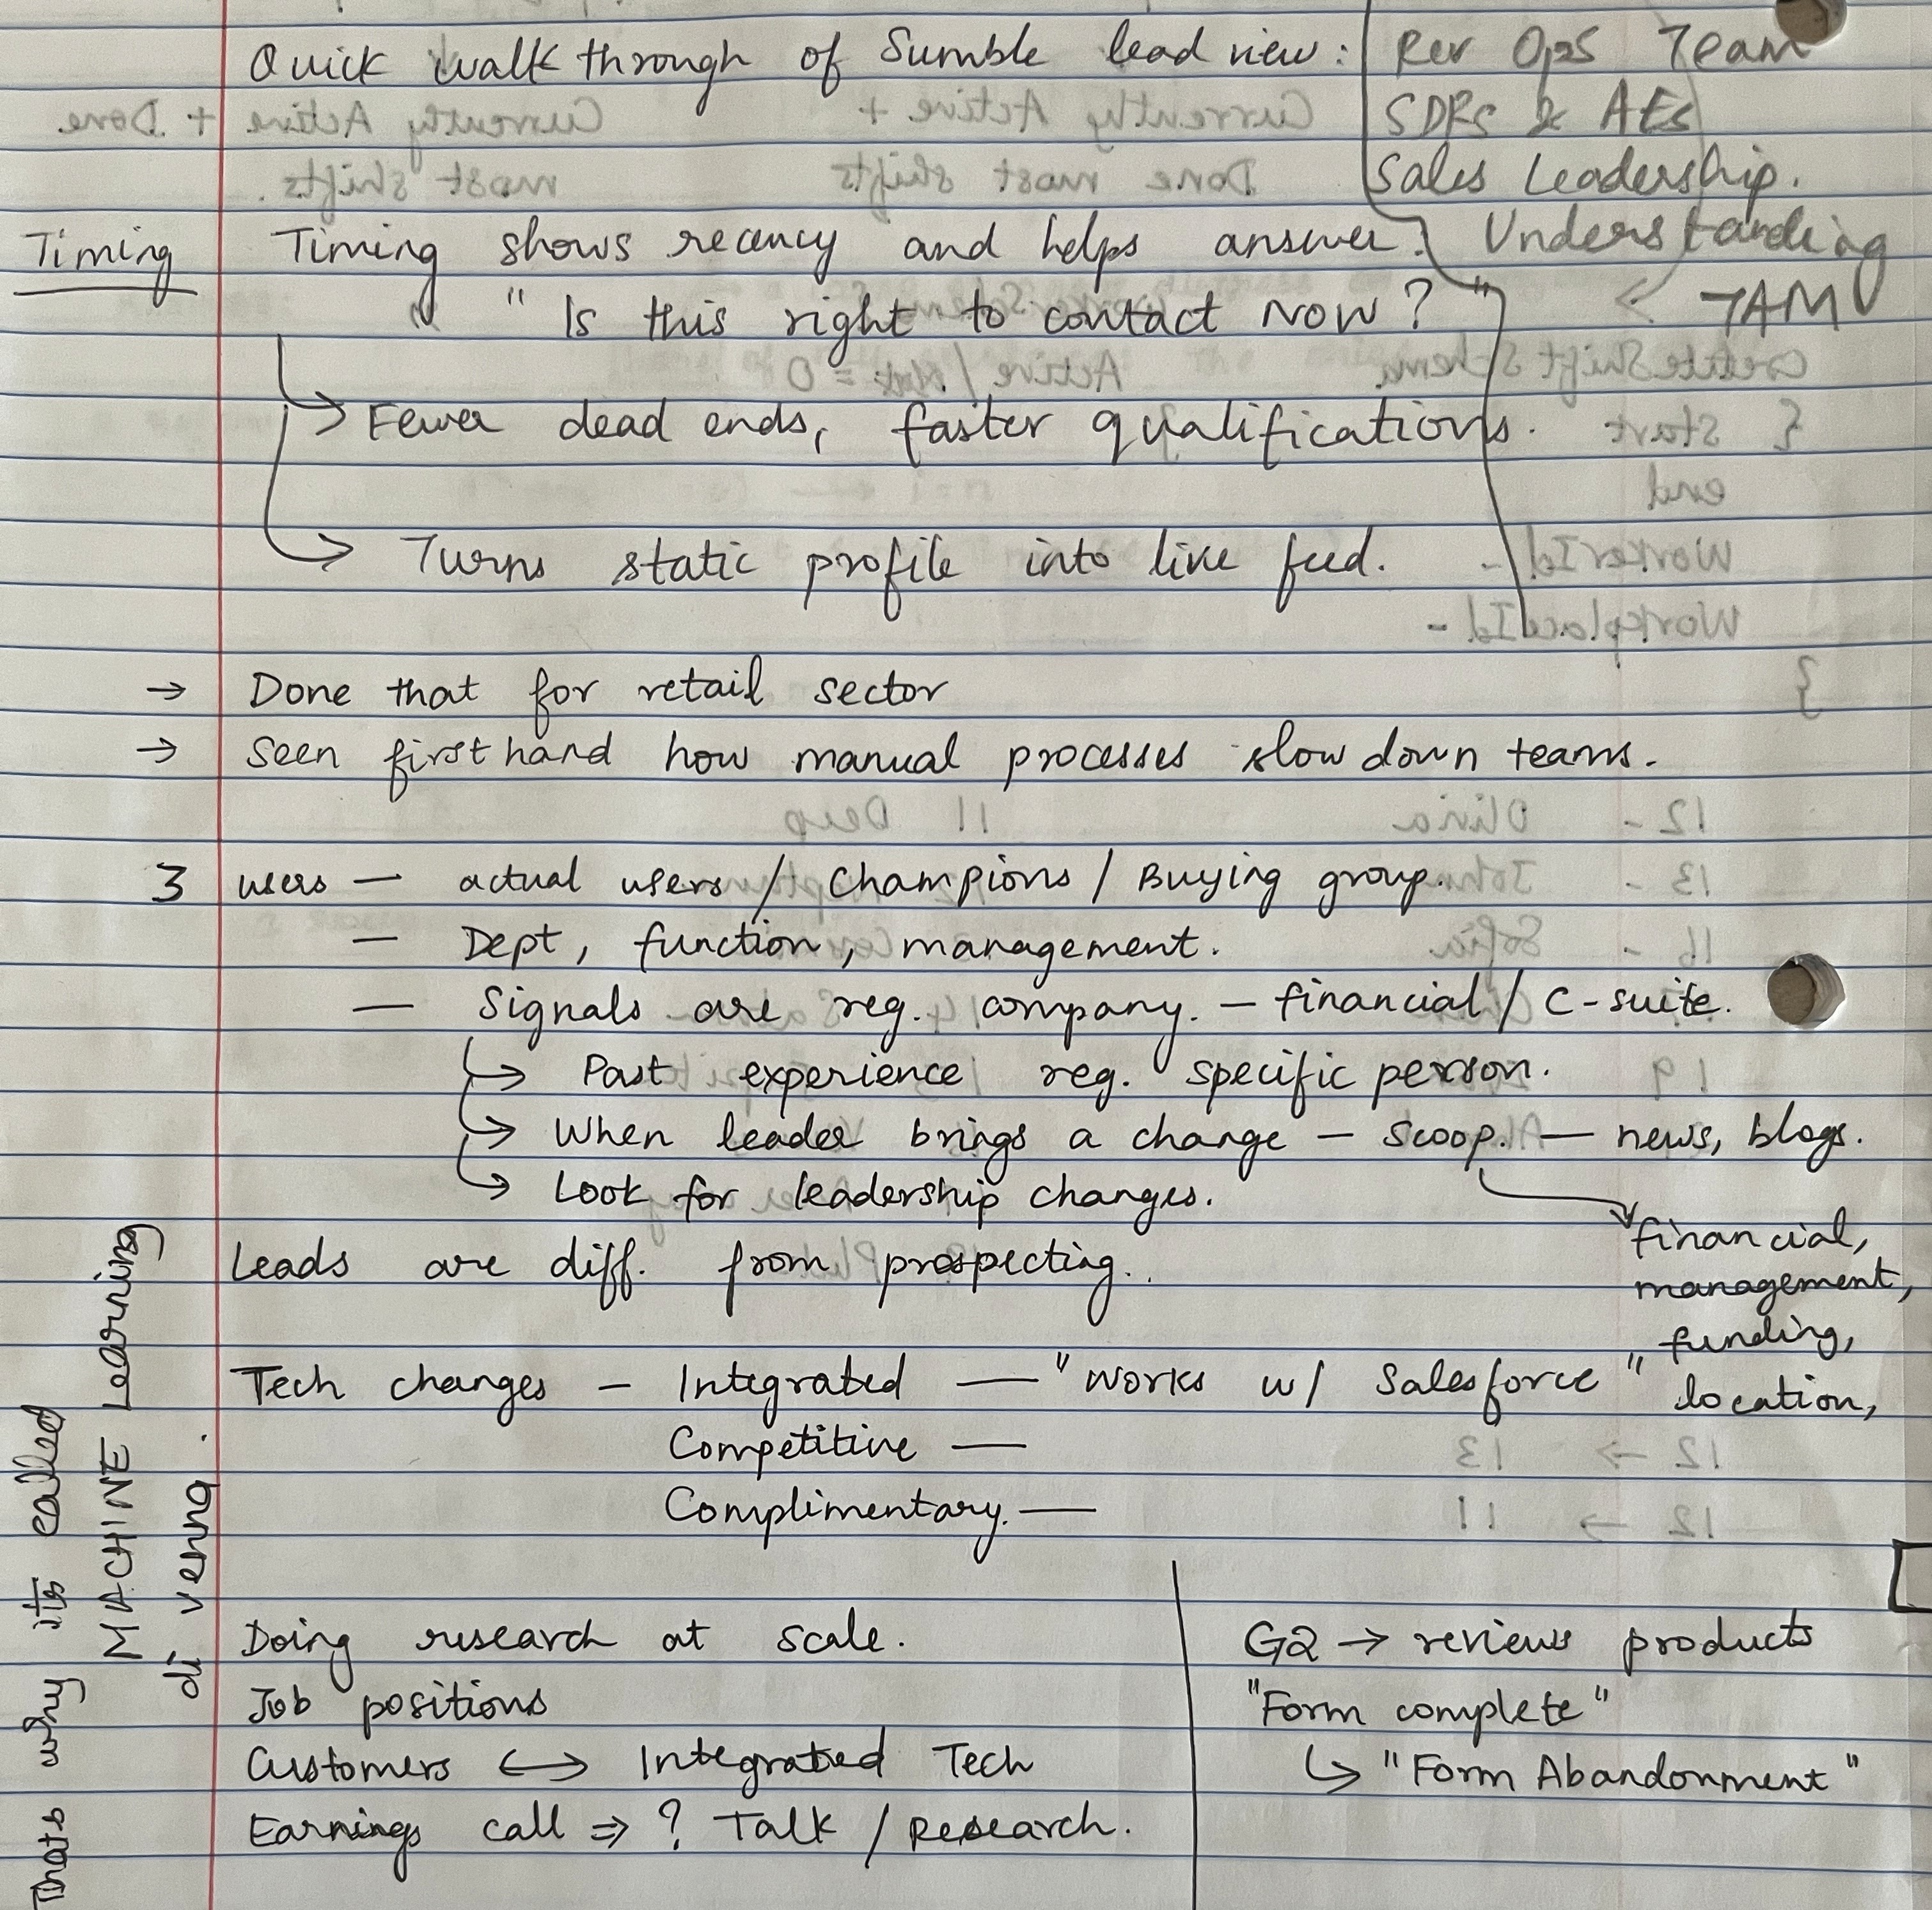 Quick walk through of Sumble lead view :
Rev Ops Team
SDRs & AEs
Sales Leadership.
Understanding
< TAM
Timing
Timing shows recency and helps answer.
" Is this right to contact NOW ? "
→ Fewer dead ends, faster qualifications.
→ Turns static profile into live feed.
→ Done that for retail sector
→ Seen first hand how manual processes slow down teams.
3 users — actual users / Champions / Buying group.
— Dept, function, management.
— Signals are reg. company. — financial / C-suite.
↳ Past experience reg. specific person.
↳ When leader brings a change — Scoop. — news, blogs.
↳ Look for leadership changes.
financial,
management,
funding,
location,
Leads are diff. from prospecting.
Tech changes — Integrated — "Works w/ Salesforce"
Competitive —
Complimentary. —
Doing research at scale.
Job positions
Customers ↔ Integrated Tech
Earnings call ⇒ ? Talk / Research.
G2 → reviews products
"Form complete"
↳ "Form Abandonment"
Thats why its called
MACHINE Learning
di venna.